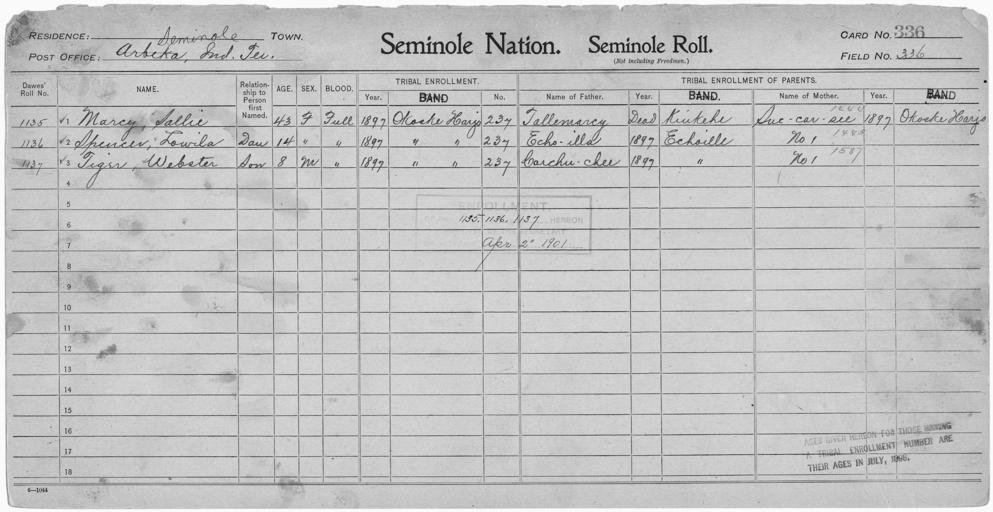 RESIDENCE: Seminole TOWN.
POST OFFICE: Arbeka, Ind. Ter.
Seminole Nation. Seminole Roll.
(Not including Freedmen.)
CARD NO. 336
FIELD NO. 336
Dawes' Roll No. NAME. Relationship to Person first Named. AGE. SEX. BLOOD. TRIBAL ENROLLMENT. TRIBAL ENROLLMENT OF PARENTS.
Year. BAND No. Name of Father. Year. BAND. Name of Mother. Year. BAND
1135 1 Marcy, Sallie 43 F Full 1897 Okoske Harjo 237 Tallemarcy Dead Kinkehe Suc-car-see 1897 Okoske Harjo
1136 2 Spencer, Lowila Dau 14 " " 1897 " " 237 Echo-illa 1897 Echoille No 1
1137 3 Tiger, Webster Son 8 M " 1897 " " 237 Carchu-chee 1897 " No 1
4
5
ENROLLMENT
6 1135 1136 1137 HEREON
7 Apr 2 1901
8
9
10
11
12
13
14
15
16
17
18
AGES GIVEN HEREON FOR THOSE HAVING
A TRIBAL ENROLLMENT NUMBER ARE
THEIR AGES IN JULY, 1898.
6—1044